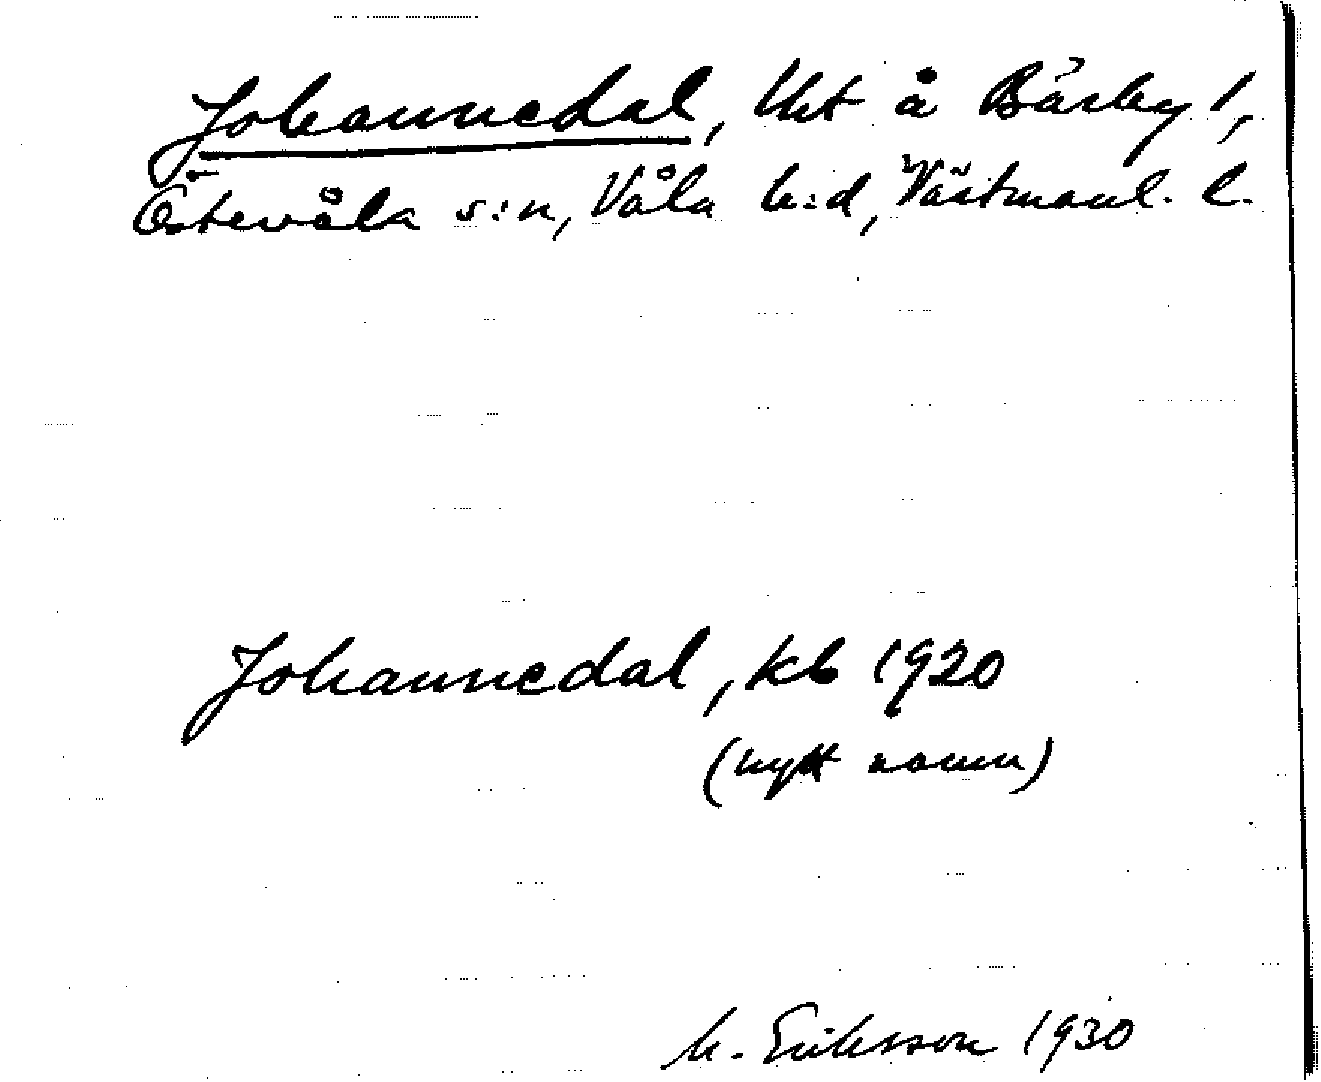 Johannedal, Uht å Bärby 1,
Östervåla s:n, Våla h:d, Västmanl. l.
Johannedal, kb 1920
(nytt namn)
M. Eriksson 1930